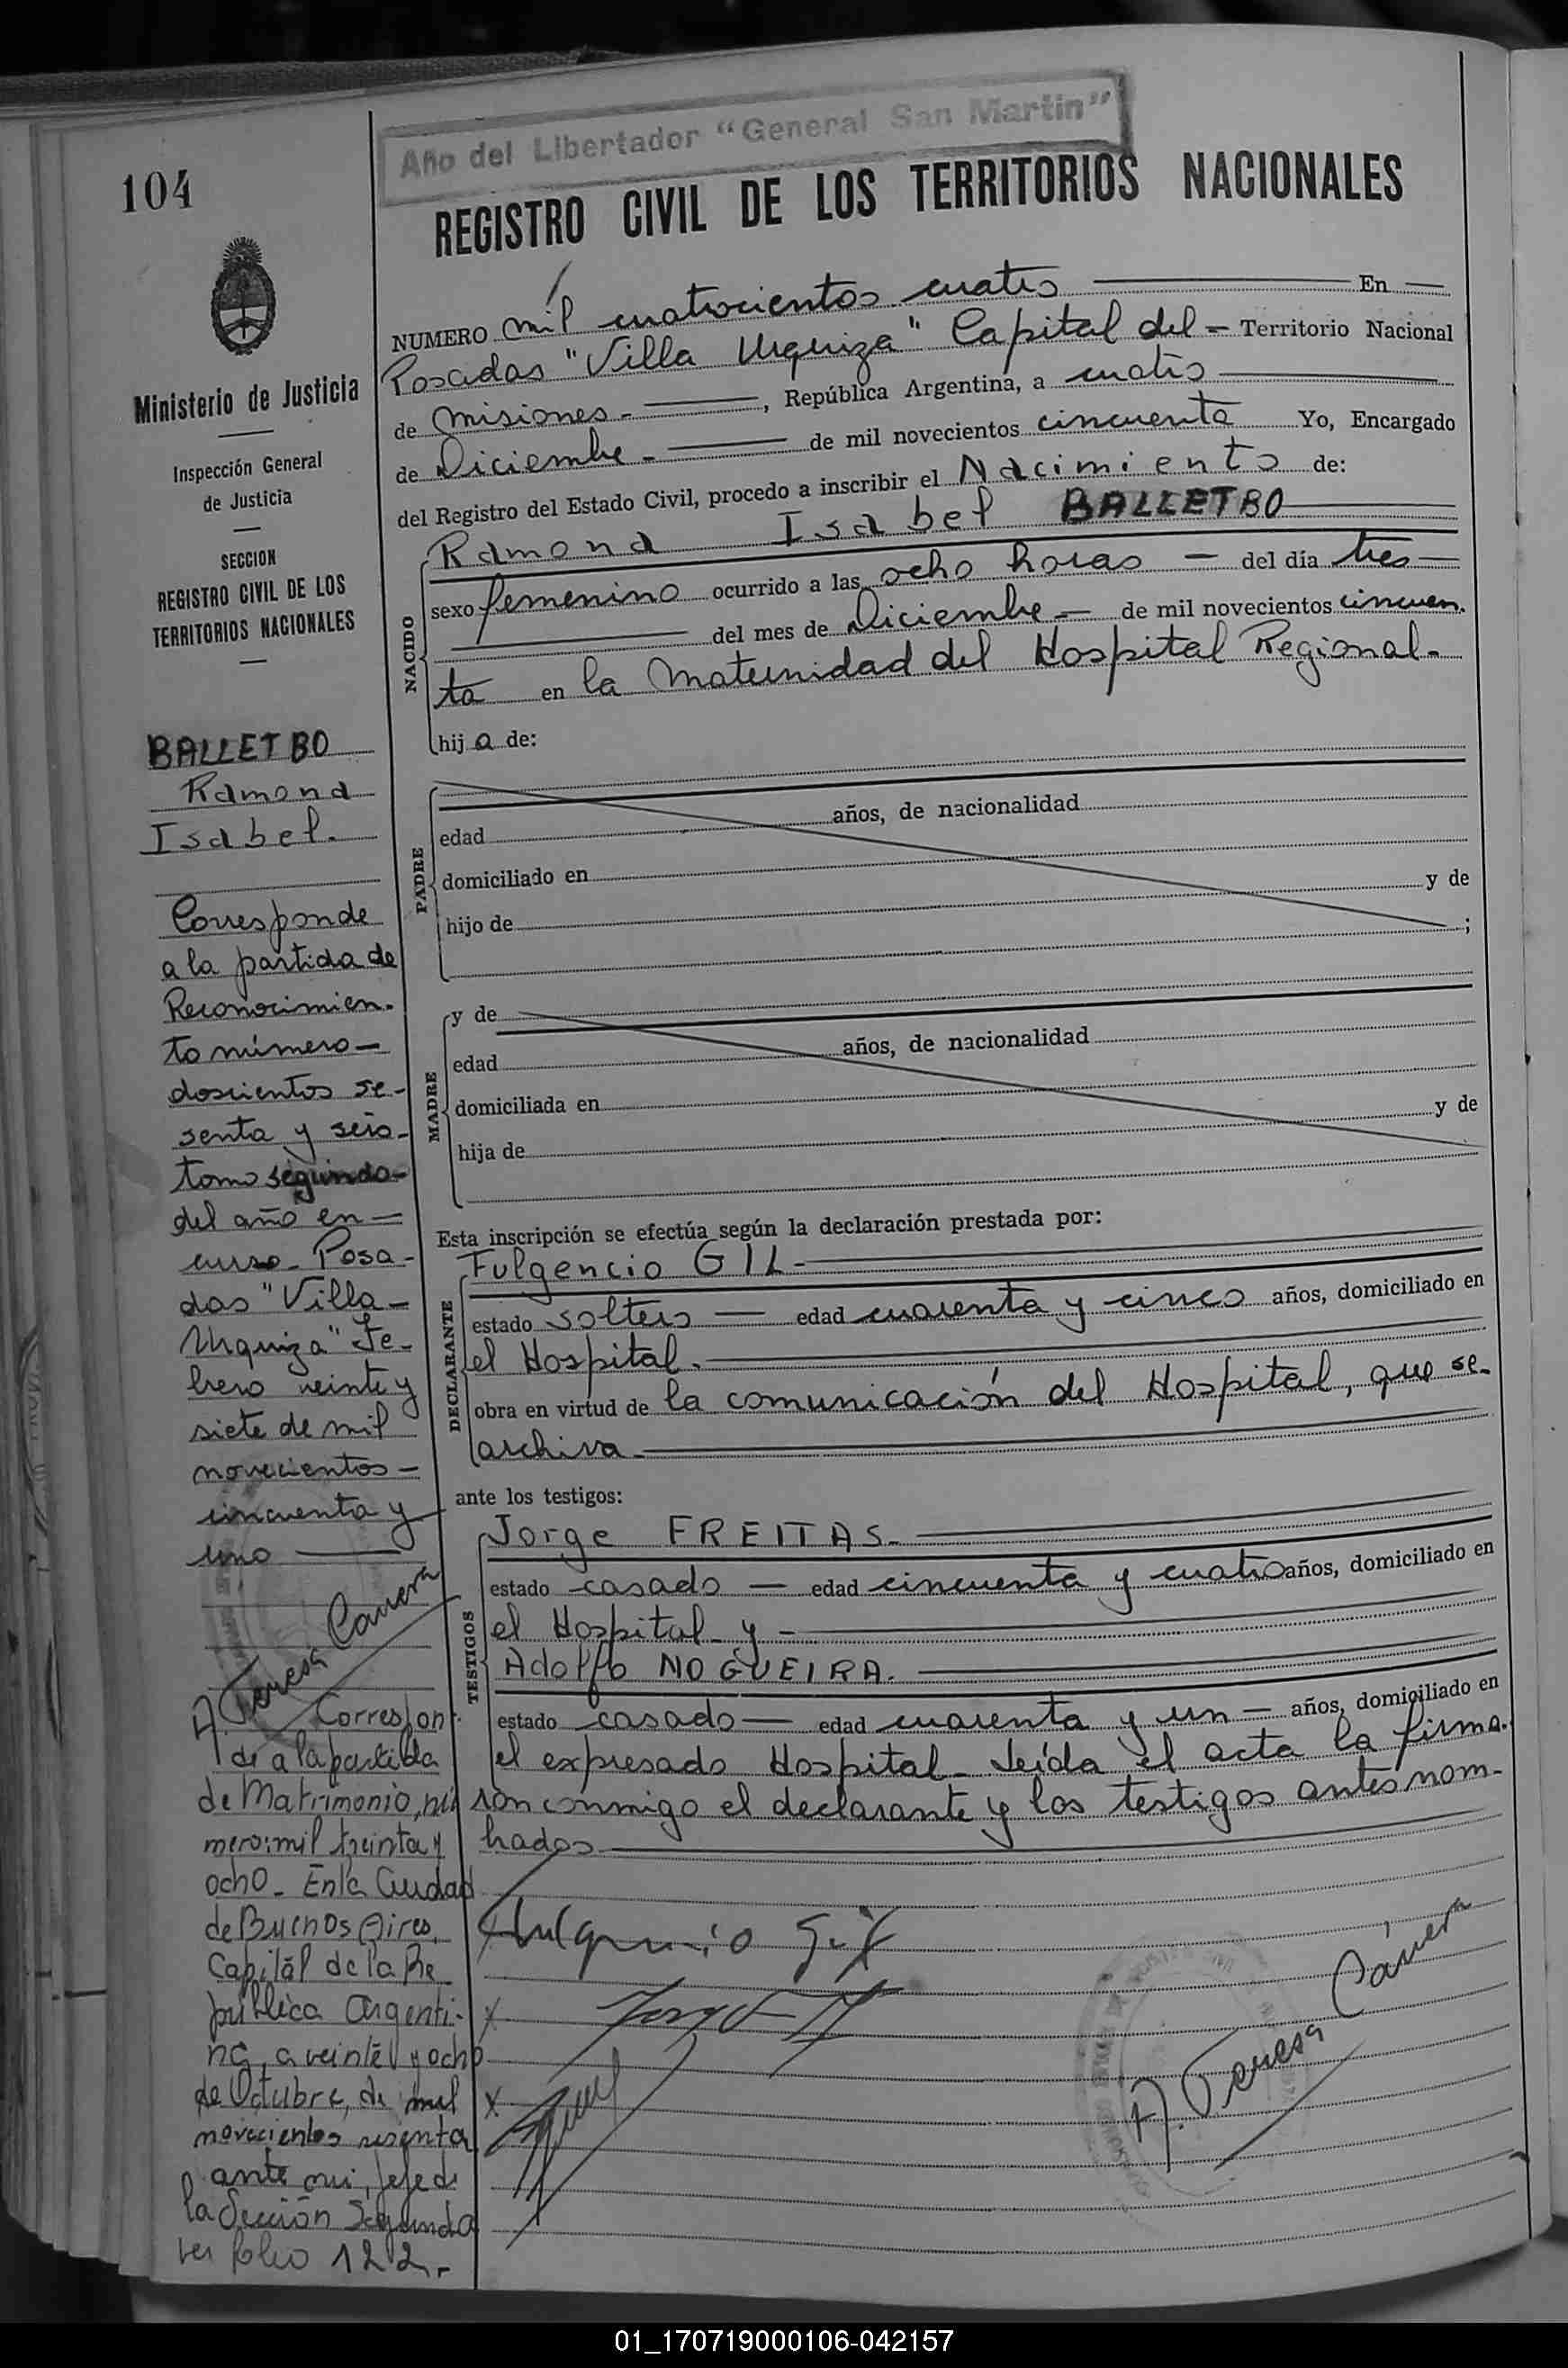 Año del Libertador "General San Martin"
104
REGISTRO CIVIL DE LOS TERRITORIOS NACIONALES
Ministerio de Justicia
Inspección General
de Justicia
SECCION
REGISTRO CIVIL DE LOS
TERRITORIOS NACIONALES
BALLETBO
Ramona
Isabel.
Corresponde
a la partida de
Reconocimien-
to número —
doscientos se-
senta y seis -
tomo segundo -
del año en —
curso - Posa -
das "Villa —
Urquiza" Fe -
brero veinte y
siete de mil
novecientos —
cincuenta y
uno —
A. Teresa Cáneva
Correspon
de a la partida
de Matrimonio, nú
mero: mil treinta y
ocho - En la Ciudad
de Buenos Aires,
Capital de la Re
pública Argenti-
na, a veinte y ocho
de Octubre, de mil
novecientos sesenta
ante mi, jefe de
la Sección Segunda
ver folio 122.-
NUMERO mil cuatrocientos cuatro — En —
Posadas "Villa Urquiza" Capital del — Territorio Nacional
de Misiones - —, República Argentina, a cuatro —
de Diciembre - — de mil novecientos cincuenta Yo, Encargado
del Registro del Estado Civil, procedo a inscribir el Nacimiento de:
NACIDO
Ramona Isabel BALLETBO —
sexo femenino ocurrido a las ocho horas — del día tres —
— del mes de Diciembre — de mil novecientos cincuen-
ta en la Maternidad del Hospital Regional.
hija de:
PADRE
edad años, de nacionalidad
domiciliado en
hijo de y de
;
MADRE
y de
edad años, de nacionalidad
domiciliada en
hija de y de
Esta inscripción se efectúa según la declaración prestada por:
DECLARANTE
Fulgencio GIL. —
estado soltero — edad cuarenta y cinco años, domiciliado en
el Hospital. —
obra en virtud de la comunicación del Hospital, que se
archiva —
ante los testigos:
TESTIGOS
Jorge FREITAS. —
estado casado — edad cincuenta y cuatro años, domiciliado en
el Hospital y - —
Adolfo NOGUEIRA. —
estado casado — edad cuarenta y un — años, domiciliado en
el expresado Hospital - Leída el acta la firma-
ron conmigo el declarante y los testigos antes nom-
brados —
Fulgencio Gil
x Jorge F
x
A. Teresa Cáneva
01_170719000106-042157